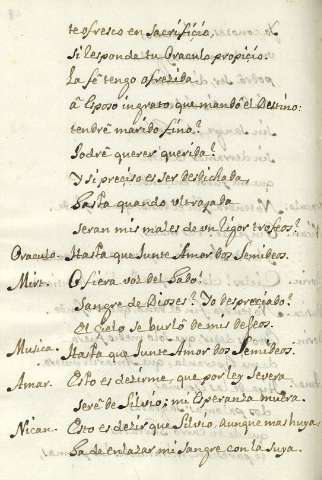 te ofresco en Sacrificio,
Si Responda tu Oraculo propicio.
La fê tengo ofrezida
â Esposo ingrato que mandô el Destino:
tendrê marido fino?
Podrê querer querida?
Y si preciso es ser desdichada,
hasta quando ultrajada
seran mis males de un rigor trofeos?
Oraculo. Hasta que Junte Amor dos Semideos.
Mirt. O fiera voz del hado!
Sangre de Dioses? Yo despreciado?
El Cielo se burlô de mis deseos.
Musica. Hasta que Junte Amor dos Semideos.
Amar. Esto es dezirme, que por ley severa
serê de Silvio; mi Esperanza muera.
Nican. Esto es dezir que Silvio, aunque mas huya,
ha de enlazar mi sangre con la suya.